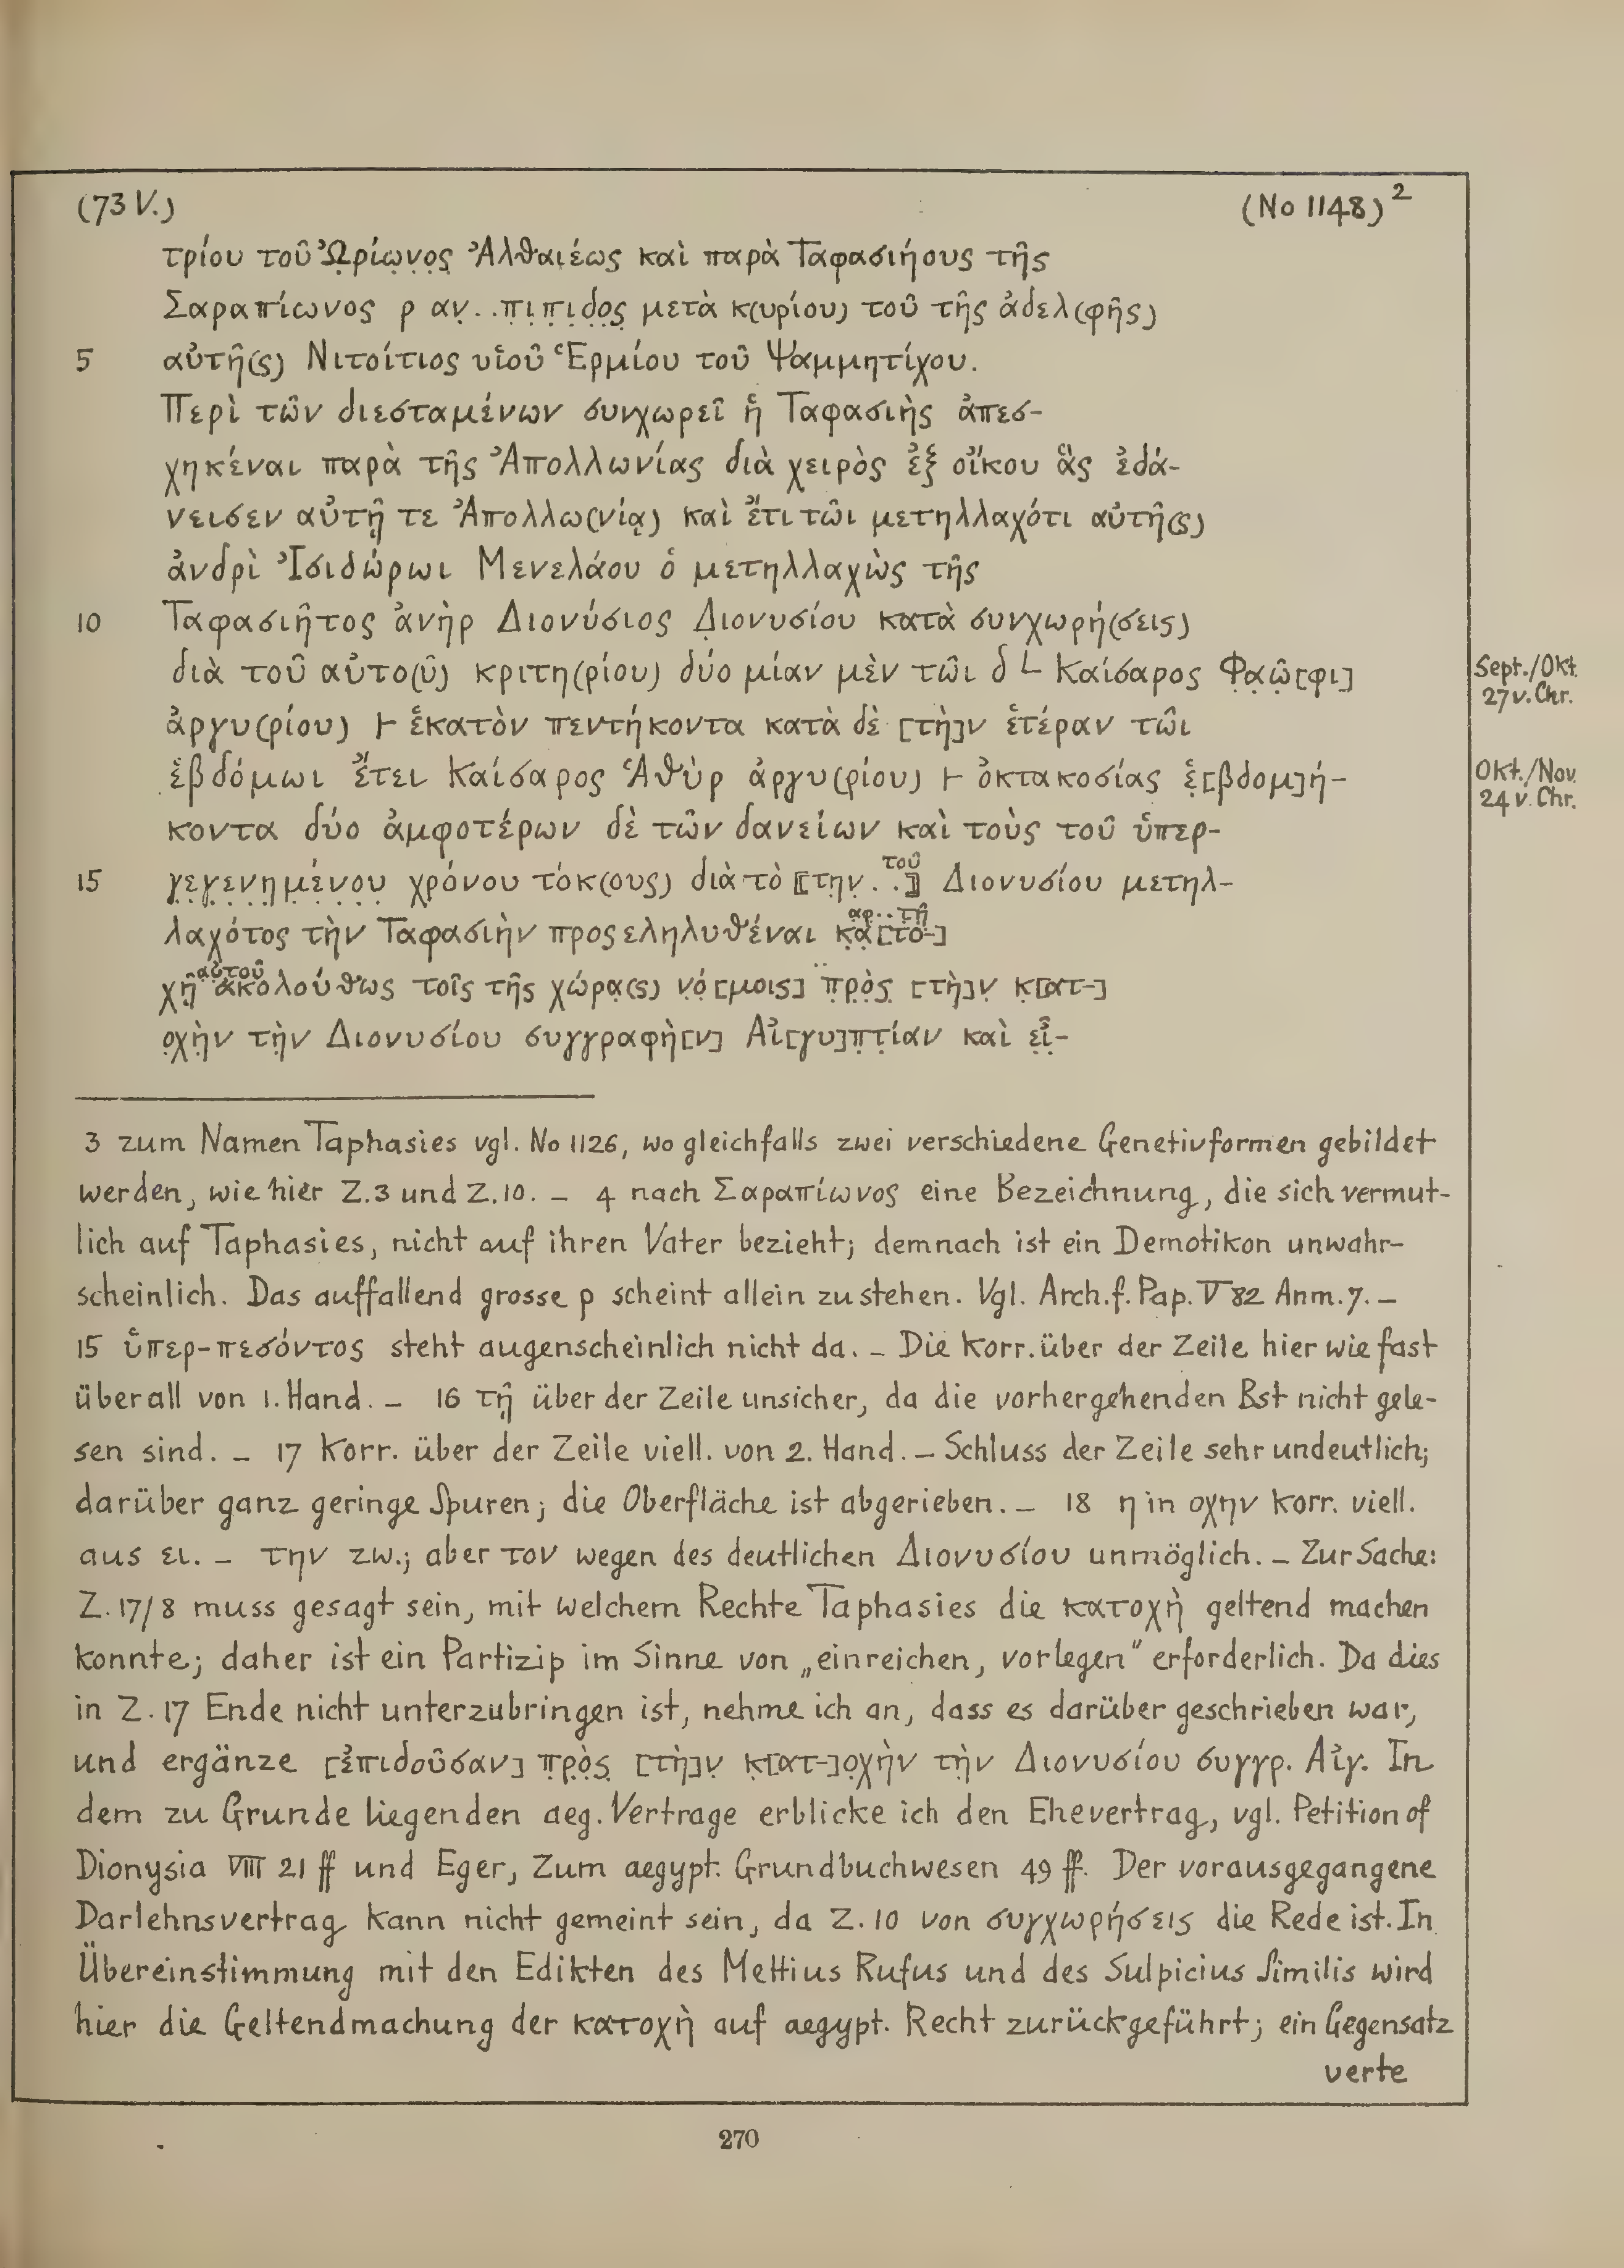 (73 V.) (No 1148)²
τρίου τοῦ Ὡ̣ρίω̣ν̣ο̣ς̣ Ἀλθαιέως καὶ παρὰ Ταφασιήους τῆς
Σαραπίωνος ρ αν̣..π̣ι̣π̣ι̣δ̣ο̣ς̣ μετὰ κ(υρίου) τοῦ τῆς ἀδελ(φῆς)
5 αὐτῆ(ς) Νιτοίτιος υἱοῦ Ἑρμίου τοῦ Ψαμμητίχου.
Περὶ τῶν διεσταμένων συνχωρεῖ ἡ Ταφασιὴς ἀπεσ-
χηκέναι παρὰ τῆς Ἀπολλωνίας διὰ χειρὸς ἐξ οἴκου ἃς ἐδά-
νεισεν αὐτῇ τε Ἀπολλω(νίᾳ) καὶ ἔτι τῶι μετηλλαχότι αὐτῆ(ς)
ἀνδρὶ Ἰσιδώρωι Μενελάου ὁ μετηλλαχὼς τῆς
10 Ταφασιῆτος ἀνὴρ Διονύσιος Δ̣ιονυσίου κατὰ συνχωρή(σεις)
διὰ τοῦ αὐτο(ῦ) κριτη(ρίου) δύο μίαν μὲν τῶι δ L Καίσαρος Φ̣α̣ῶ̣[φι] Sept./Okt. 27 v. Chr.
ἀργυ(ρίου) ⊢ ἑκατὸν πεντήκοντα κατὰ δὲ [τὴ]ν ἑτέραν τῶι
ἑβδόμωι ἔτει Καίσαρος Ἁθὺρ ἀργυ(ρίου) ⊢ ὀκτακοσίας ἑ̣[βδομ]ή- Okt./Nov. 24 v. Chr.
κοντα δύο ἀμφοτέρων δὲ τῶν δανείων καὶ τοὺς τοῦ ὑπερ-
15 γ̣ε̣γ̣ε̣ν̣η̣μ̣έ̣ν̣ο̣υ̣ χρόνου τόκ(ους) διὰ τὸ ⟦τ̣η̣ν̣..⟧ τοῦ Διονυσίου μετηλ-
λαχότος τὴν Ταφασιὴν προσεληλυθέναι αρ̣..τ̣ῇ̣ κ̣α̣[το-]
χῇ̣ αὐτοῦ ἀκολούθως τοῖς τῆς χώρα̣(ς) ν̣ό̣[μοις] π̣ρ̣ὸ̣ς̣ [τὴ]ν̣ κ̣[ατ-]
ο̣χ̣ὴ̣ν τὴ̣ν Διονυσίου συγγραφὴ̣[ν] Αἰ[γυ]π̣τ̣ίαν καὶ ε̣ἶ̣-
3 zum Namen Taphasies vgl. No 1126, wo gleichfalls zwei verschiedene Genetivformen gebildet
werden, wie hier Z.3 und Z.10. – 4 nach Σαραπίωνος eine Bezeichnung, die sich vermut-
lich auf Taphasies, nicht auf ihren Vater bezieht; demnach ist ein Demotikon unwahr-
scheinlich. Das auffallend grosse ρ scheint allein zu stehen. Vgl. Arch.f.Pap. V 82 Anm.7. –
15 ὑπερ-πεσόντος steht augenscheinlich nicht da. – Die Korr. über der Zeile hier wie fast
überall von 1. Hand. – 16 τῇ über der Zeile unsicher, da die vorhergehenden Bst nicht gele-
sen sind. – 17 Korr. über der Zeile viell. von 2. Hand. – Schluss der Zeile sehr undeutlich;
darüber ganz geringe Spuren; die Oberfläche ist abgerieben. – 18 η in οχην korr. viell.
aus ει. – την zw.; aber τον wegen des deutlichen Διονυσίου unmöglich. – Zur Sache:
Z. 17/8 muss gesagt sein, mit welchem Rechte Taphasies die κατοχὴ geltend machen
konnte; daher ist ein Partizip im Sinne von „einreichen, vorlegen" erforderlich. Da dies
in Z. 17 Ende nicht unterzubringen ist, nehme ich an, dass es darüber geschrieben war,
und ergänze [ἐπιδοῦσαν] π̣ρ̣ὸ̣ς̣ [τὴ]ν̣ κ̣[ατ-]ο̣χ̣ὴν τὴν Διονυσίου συγγρ. Αἰγ. In
dem zu Grunde liegenden aeg. Vertrage erblicke ich den Ehevertrag, vgl. Petition of
Dionysia VIII 21 ff und Eger, Zum aegypt. Grundbuchwesen 49 ff. Der vorausgegangene
Darlehnsvertrag kann nicht gemeint sein, da Z. 10 von συγχωρήσεις die Rede ist. In
Übereinstimmung mit den Edikten des Mettius Rufus und des Sulpicius Similis wird
hier die Geltendmachung der κατοχὴ auf aegypt. Recht zurückgeführt; ein Gegensatz
verte
270